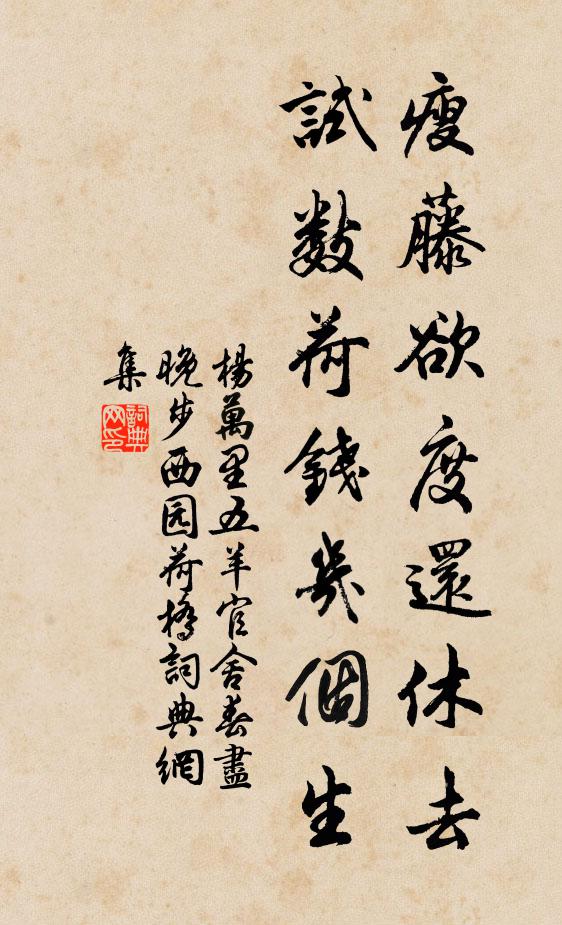 瘦藤欲度還休去
試数荷錢幾個生
楊萬里五羊官舍春盡
晚步西园荷橋詞典網
集
詞典
网印